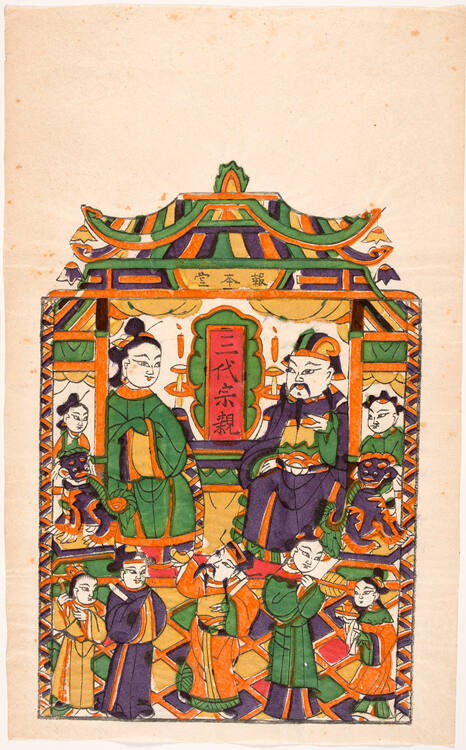 報本堂
三代宗親